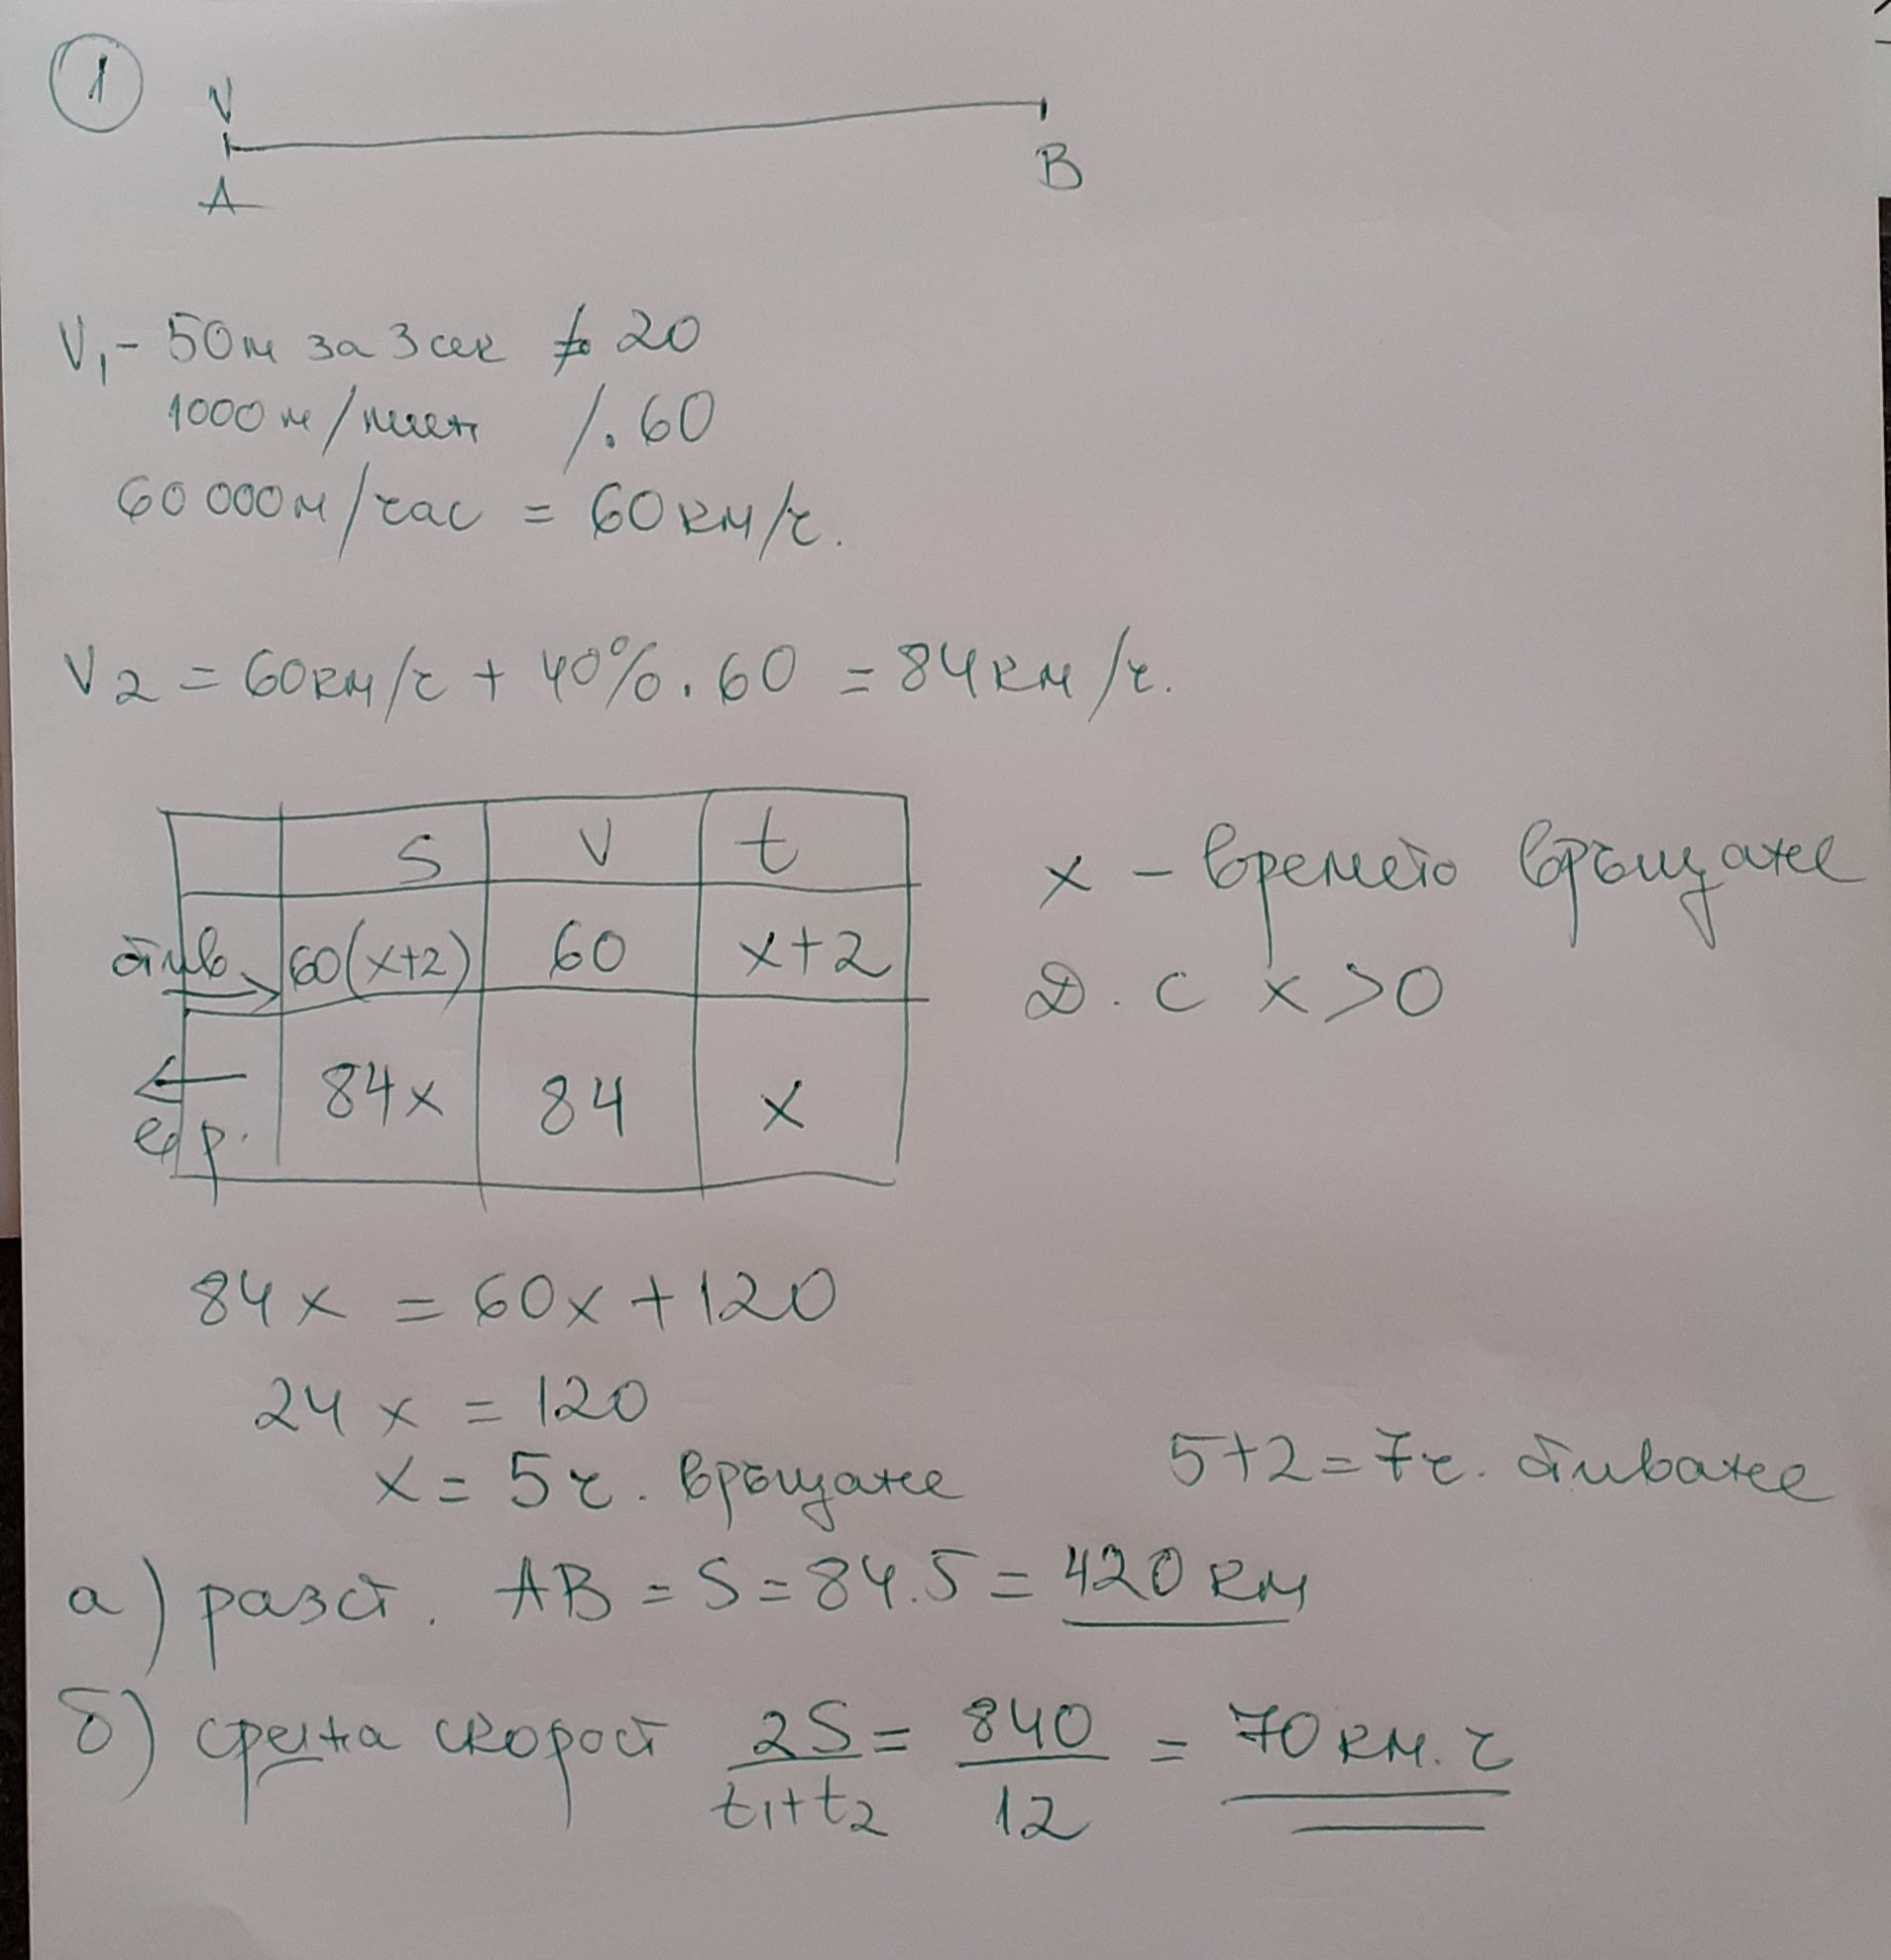 1
V
A B
V₁ - 50м за 3 сек /. 20
1000 м/мин /. 60
60 000 м/час = 60 км/ч.
V₂ = 60 км/ч + 40% . 60 = 84 км/ч.
S V t
отив. 60(x+2) 60 x+2
вр. 84x 84 x
x - времето връщане
Д. С x > 0
84x = 60x + 120
24x = 120
x = 5 ч. връщане 5+2 = 7 ч. отиване
а) разст. AB = S = 84.5 = 420 км
б) средна скорост 2S/(t₁+t₂) = 840/12 = 70 км. ч